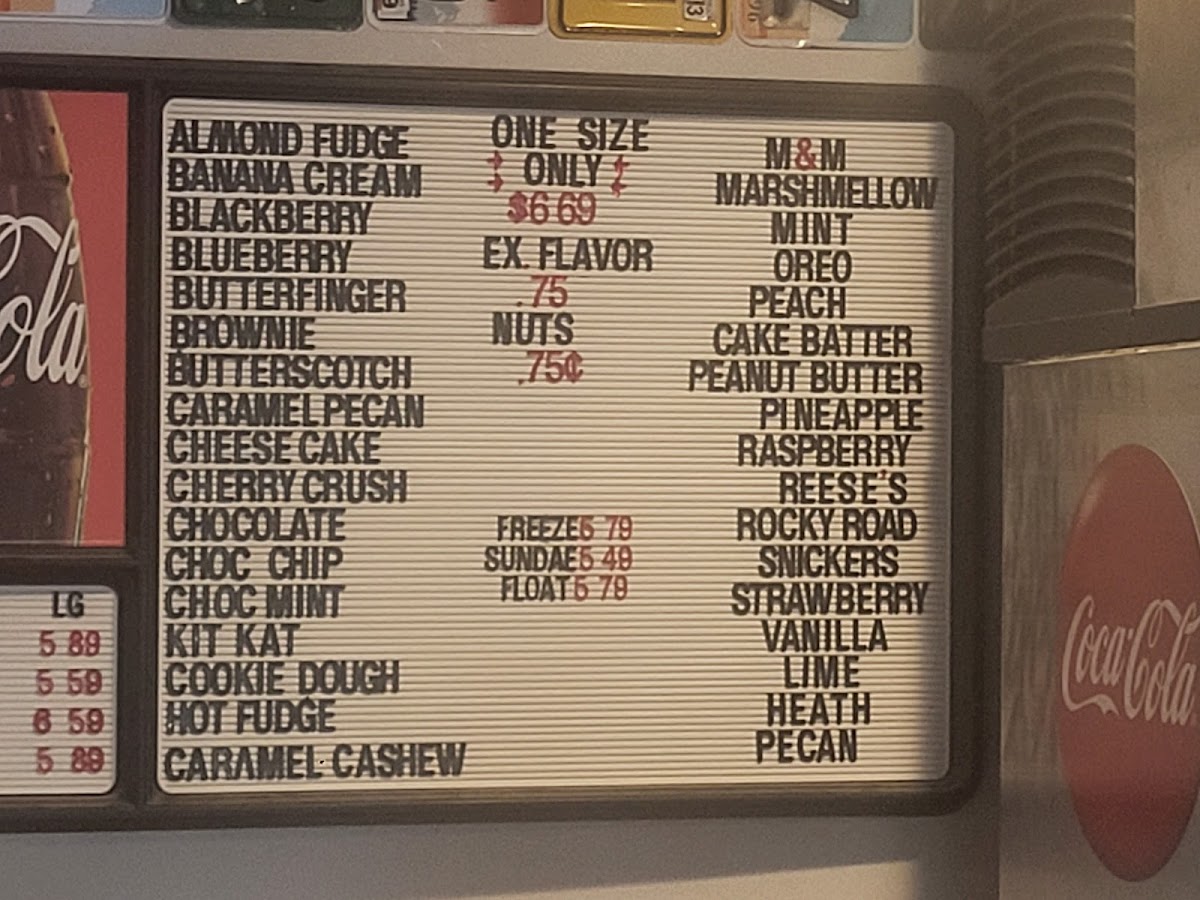 ola
LG
5 89
5 59
6 59
5 89
ALMOND FUDGE
BANANA CREAM
BLACKBERRY
BLUEBERRY
BUTTERFINGER
BROWNIE
BUTTERSCOTCH
CARAMEL PECAN
CHEESE CAKE
CHERRY CRUSH
CHOCOLATE
CHOC CHIP
CHOC MINT
KIT KAT
COOKIE DOUGH
HOT FUDGE
CARAMEL CASHEW
ONE SIZE
ONLY
$6 69
EX. FLAVOR
.75
NUTS
.75¢
FREEZE 5 79
SUNDAE 5 49
FLOAT 5 79
M&M
MARSHMELLOW
MINT
OREO
PEACH
CAKE BATTER
PEANUT BUTTER
PINEAPPLE
RASPBERRY
REESE'S
ROCKY ROAD
SNICKERS
STRAWBERRY
VANILLA
LIME
HEATH
PECAN
Coca-Cola